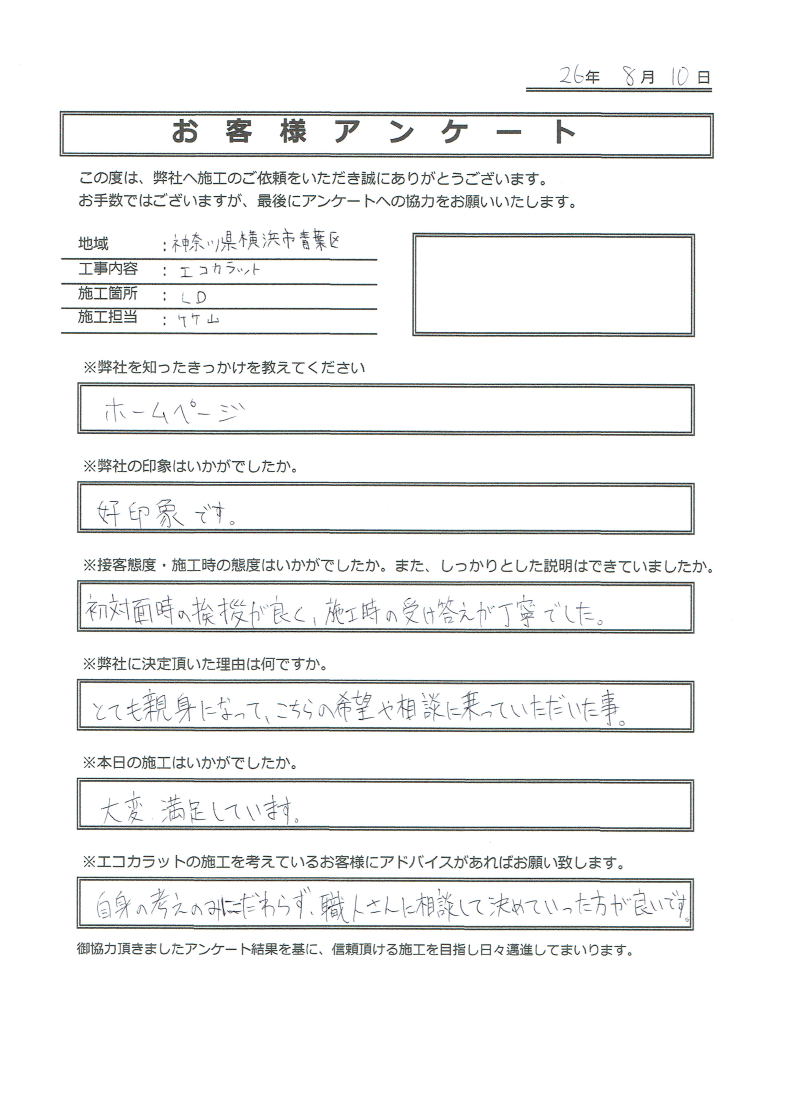 26年 8月 10日
お客様アンケート
この度は、弊社へ施工のご依頼をいただき誠にありがとうございます。
お手数ではございますが、最後にアンケートへの協力をお願いいたします。
地域 : 神奈川県横浜市青葉区
工事内容 : エコカラット
施工箇所 : LD
施工担当 : 竹山
※弊社を知ったきっかけを教えてください
ホームページ
※弊社の印象はいかがでしたか。
好印象です。
※接客態度・施工時の態度はいかがでしたか。また、しっかりとした説明はできていましたか。
初対面時の挨拶が良く、施工時の受け答えが丁寧でした。
※弊社に決定頂いた理由は何ですか。
とても親身になって、こちらの希望や相談に乗っていただいた事。
※本日の施工はいかがでしたか。
大変満足しています。
※エコカラットの施工を考えているお客様にアドバイスがあればお願い致します。
自身の考えのみにこだわらず、職人さんに相談して決めていった方が良いです。
御協力頂きましたアンケート結果を基に、信頼頂ける施工を目指し日々邁進してまいります。